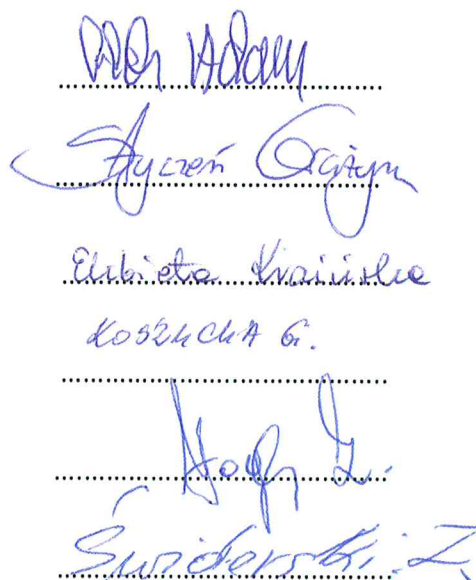 Adam
Styczeń Grażyna
Elżbieta Kraińska
KOSZUCKA G.
Z.
Świderski Z.